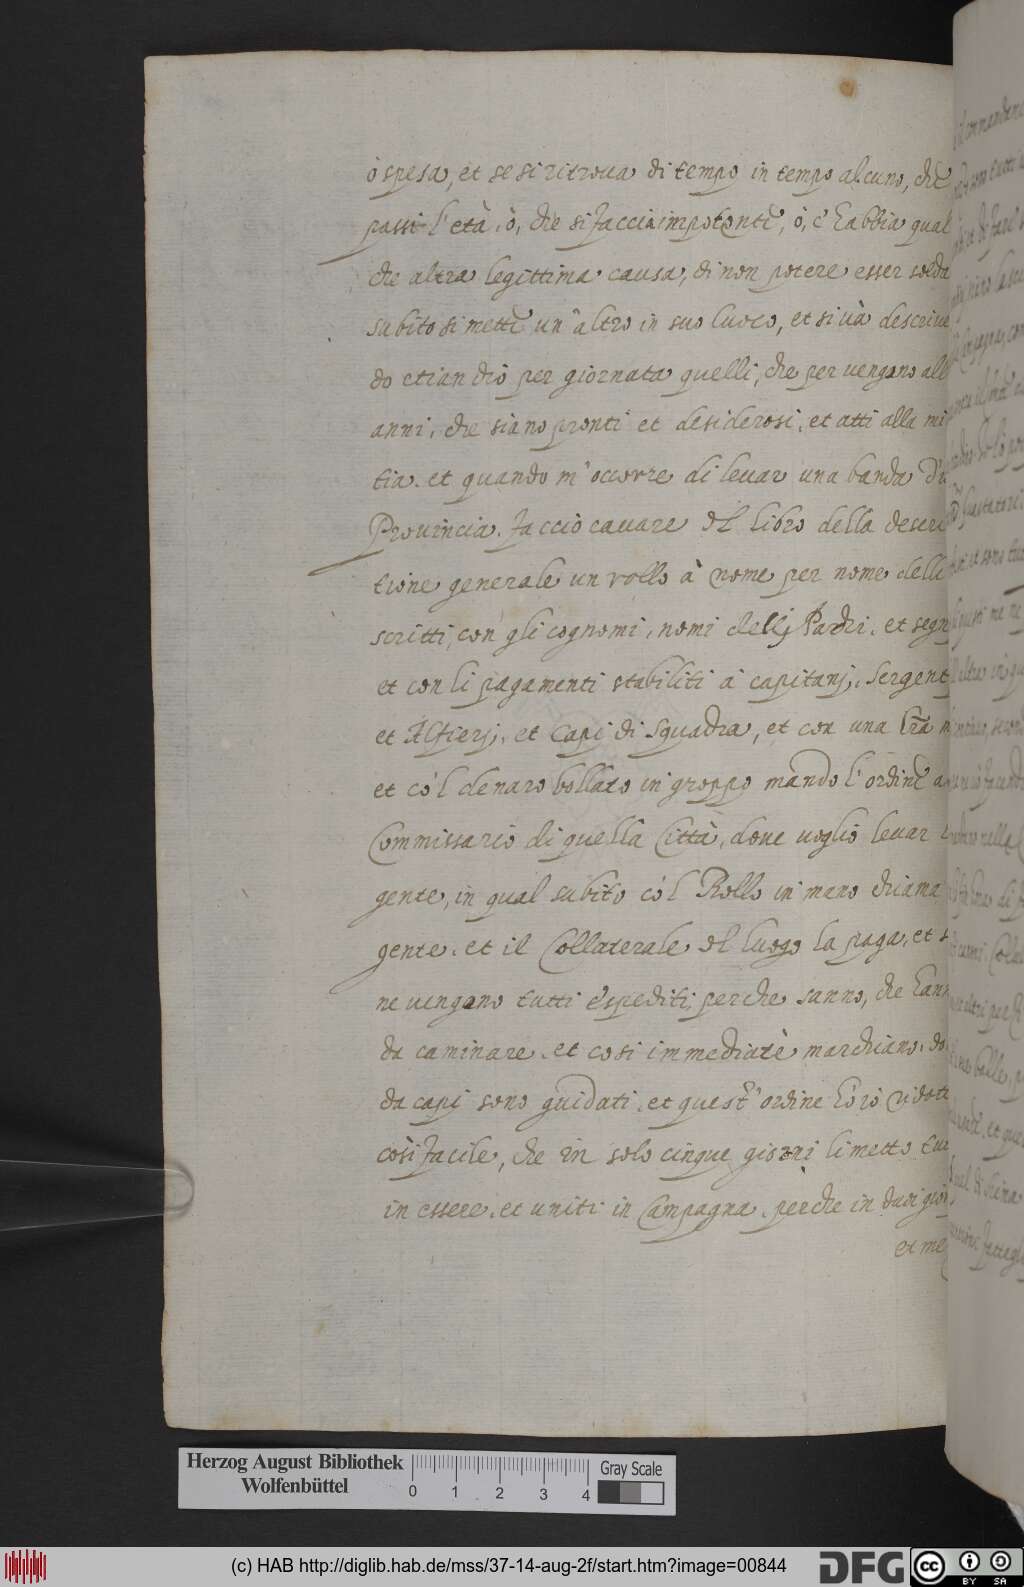 ò spesa, et se si ritroua di tempo in tempo alcuno, chē
passi l'età, ò, che si faccia impotentē, ò, c'habbia qual
che altra legittima causa, di non potere esser solda
subito si mettē un'altro in suo luoco, et si uà descriue
do etiandio per giornata quelli, che peruengono all
anni, che siano pronti et desiderosi, et atti alla mi
tia. et quando m'occorre di leuar una banda d'u
Prouincia. faccio cauare dl libro della descri
tione generale un rollo à nome per nome delli
scritti, con gli cognomi, nomi dellj Padri, et segn
et con li pagamenti stabiliti à capitanj, sergent
et Alfierj, et Capi di squadra, et con una lr̃a m
et co'l denaro bollato in groppo mando l'ordinē a
Commissario di quella Città, doue uoglio leuar l
gente, in qual subito co'l Rollo in mano chiama
gente, et il Collaterale dl luogo la paga, et s
ne uengono tutti espediti, perche sanno, che hann
da caminare, et cosi immediatè marchiano, do
da capi sono guidati, et quest'ordine l'hò ridott
così facile, che in solo cinque giorni li metto tut
in essere, et uniti in Campagna, perche in duoi gior
et me
Herzog August Bibliothek
Wolfenbüttel
0 1 2 3 4
Gray Scale
(c) HAB http://diglib.hab.de/mss/37-14-aug-2f/start.htm?image=00844
DFG
cc BY SA